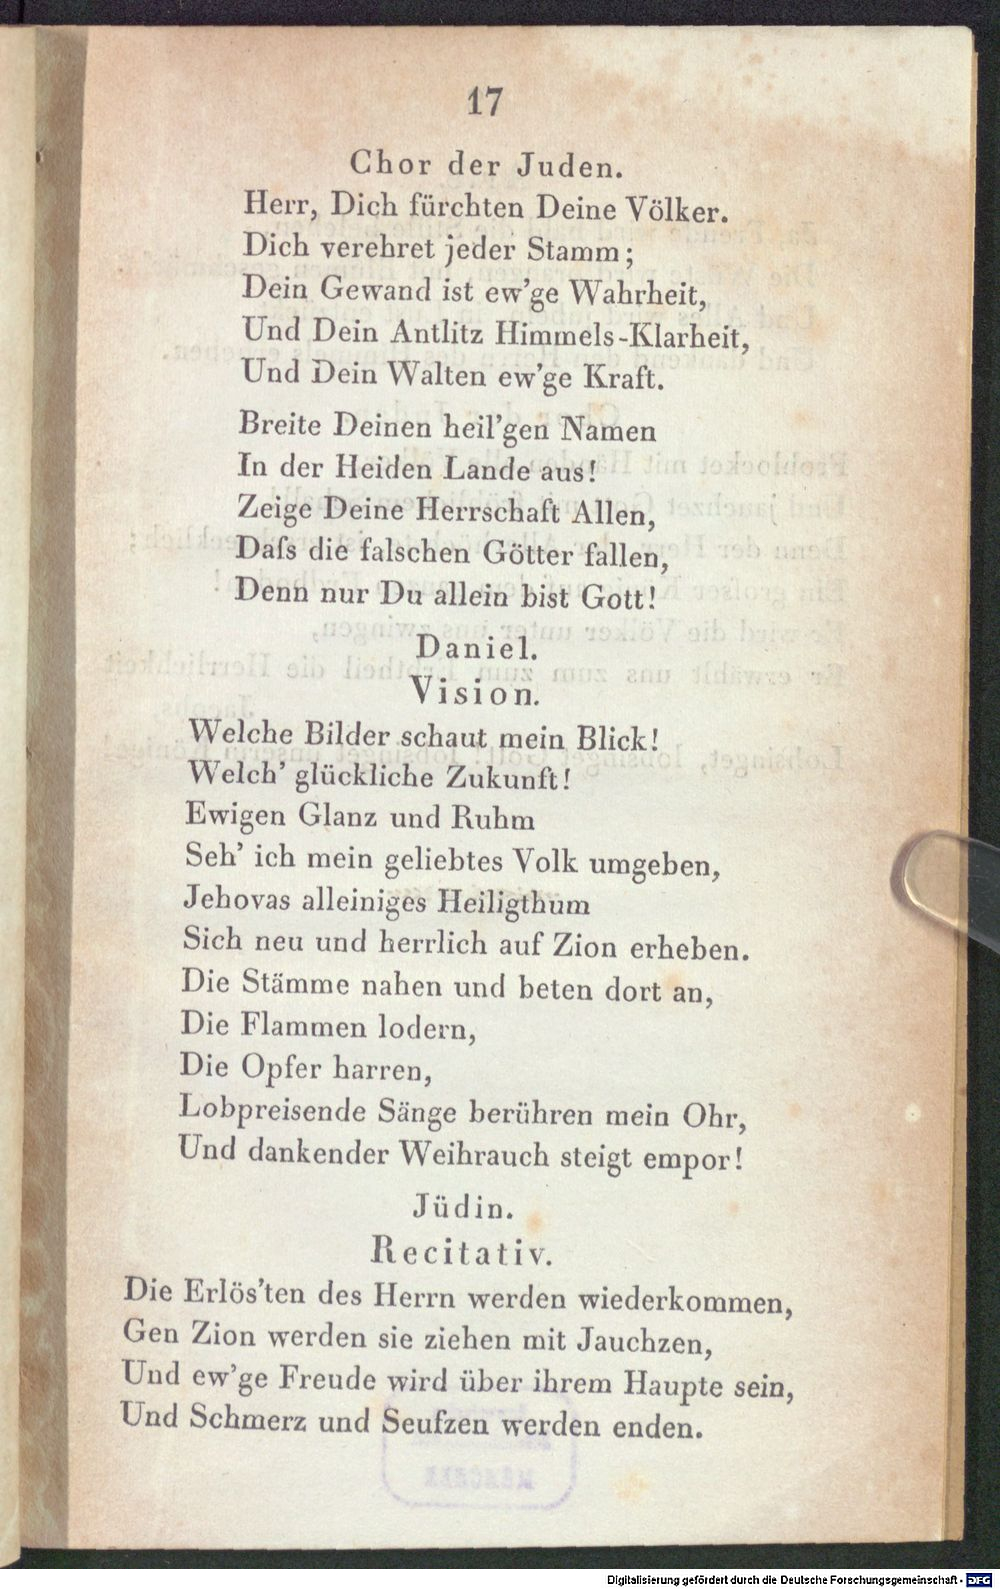 17
Chor der Juden.
Herr, Dich fürchten Deine Völker.
Dich verehret jeder Stamm;
Dein Gewand ist ew'ge Wahrheit,
Und Dein Antlitz Himmels-Klarheit,
Und Dein Walten ew'ge Kraft.
Breite Deinen heil'gen Namen
In der Heiden Lande aus!
Zeige Deine Herrschaft Allen,
Daſs die falschen Götter fallen,
Denn nur Du allein bist Gott!
Daniel.
Vision.
Welche Bilder schaut mein Blick!
Welch' glückliche Zukunft!
Ewigen Glanz und Ruhm
Seh' ich mein geliebtes Volk umgeben,
Jehovas alleiniges Heiligthum
Sich neu und herrlich auf Zion erheben.
Die Stämme nahen und beten dort an,
Die Flammen lodern,
Die Opfer harren,
Lobpreisende Sänge berühren mein Ohr,
Und dankender Weihrauch steigt empor!
Jüdin.
Recitativ.
Die Erlös'ten des Herrn werden wiederkommen,
Gen Zion werden sie ziehen mit Jauchzen,
Und ew'ge Freude wird über ihrem Haupte sein,
Und Schmerz und Seufzen werden enden.
Digitalisierung gefördert durch die Deutsche Forschungsgemeinschaft - DFG